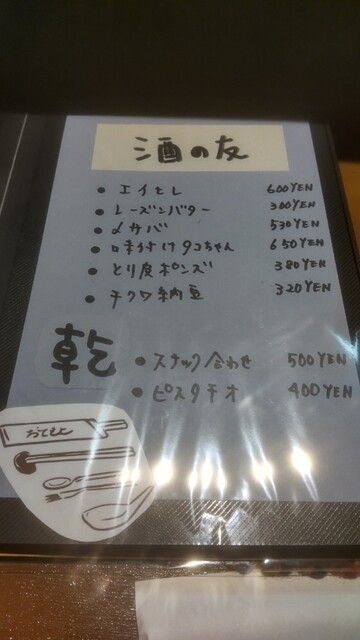 酒の友
• エイヒレ 600YEN
• レーズンバター 300YEN
• 〆サバ 530YEN
• 味付けタコちゃん 650YEN
• とり皮ポンズ 380YEN
• チクワ納豆 320YEN
乾
• スナック合わせ 500YEN
• ピスタチオ 400YEN
おてもと